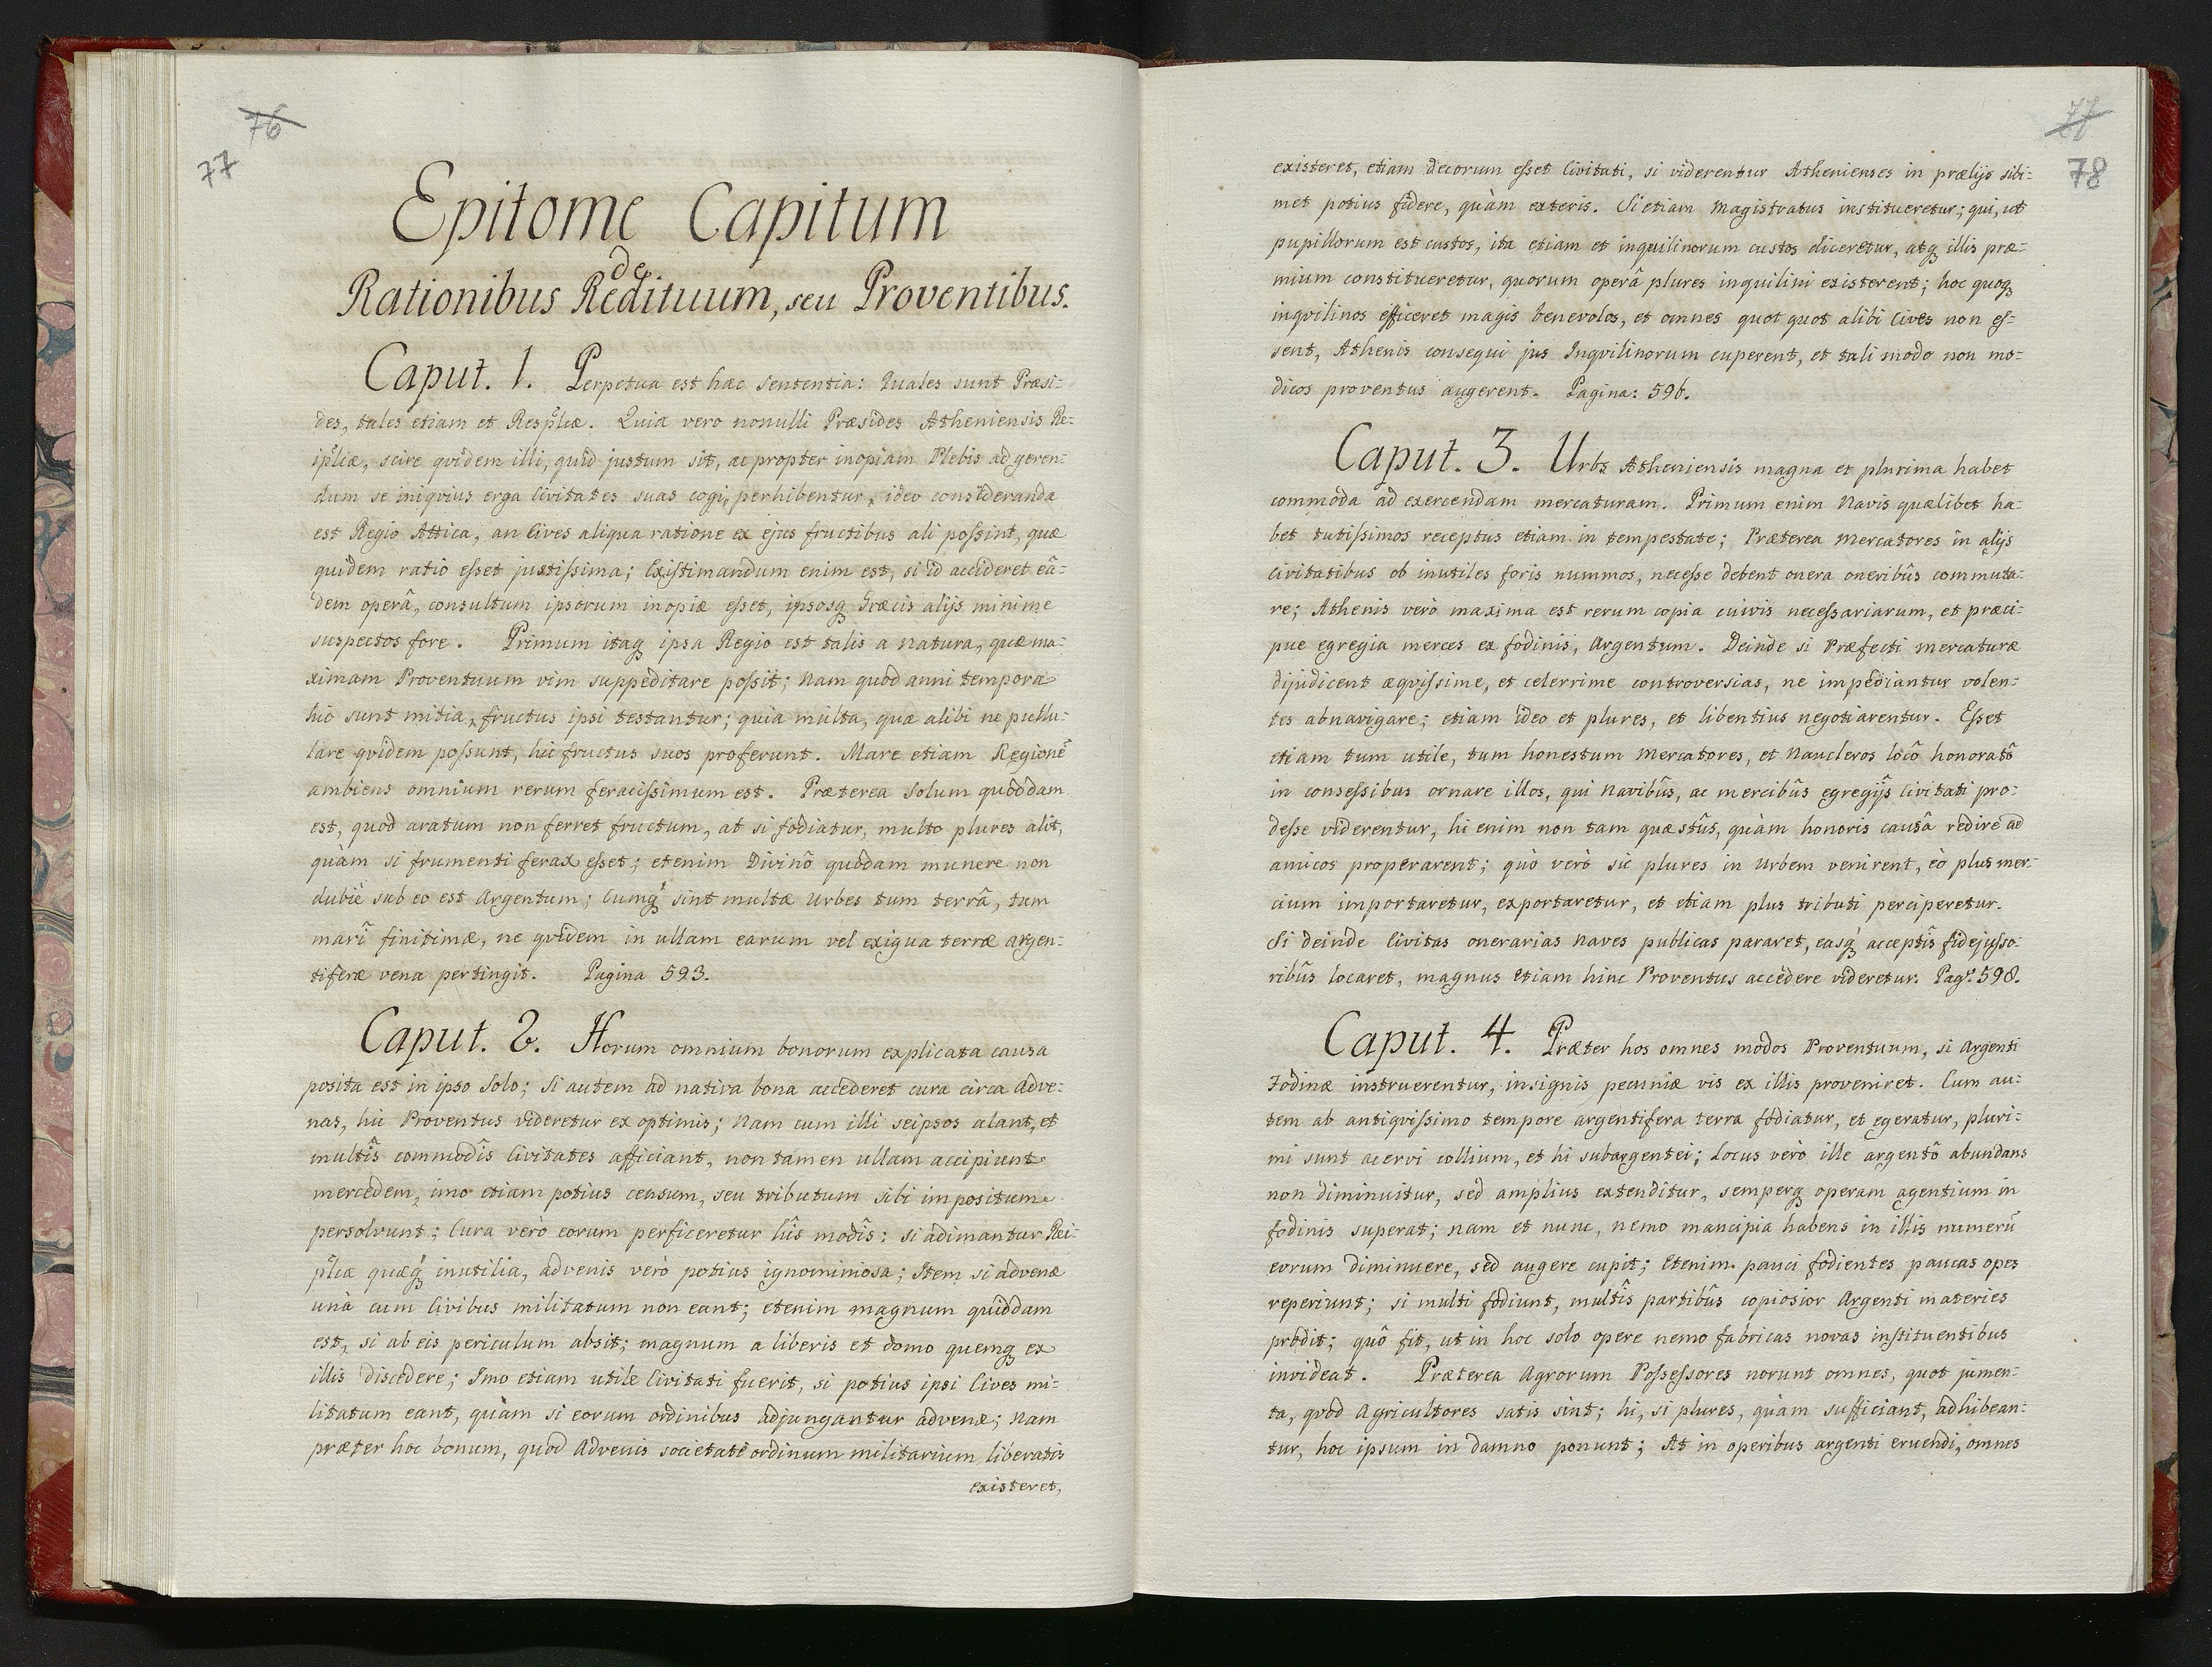 76
77
Epitome Capitum
de
Rationibus Redituum, seu Proventibus.
Caput. 1. Perpetua est hæc sententia: Quales sunt Præsi-
des, tales etiam et Resp̃licæ. Quia vero nonulli Præsides Atheniensis Re-
ip̃licæ, scire qvidem illi, quid justum sit, ac propter inopiam Plebis ad geren-
dum se iniqvius erga Civitates suas cogi, perhibentur, ideo consideranda
est Regio Attica, an Cives aliqua ratione ex ejus fructibus ali possint, quæ
quidem ratio esset justissima; Existimandum enim est, si id accideret eâ-
dem operâ, consultum ipsorum inopiæ esset, ipsosq3 Græcis alijs minime
suspectos fore. Primum itaq3 ipsa Regio est talis a natura, quæ ma-
ximam Proventuum vim suppeditare possit; Nam quod anni tempora
hic sunt mitia, fructus ipsi testantur; quia multa, quæ alibi ne pullu-
lare qvidem possunt, hic fructus suos proferunt. Mare etiam Regionẽ
ambiens omnium rerum feracissimum est. Præterea Solum quoddam
est, quod aratum non ferret fructum, at si fodiatur, multo plures alit,
quàm si frumenti ferax esset; etenim Divinô quodam munere non
dubiè sub eo est Argentum; Cumq3 sint multæ Urbes tum terrâ, tum
marî finitimæ, ne qvidem in ullam earum vel exigua terræ argen-
tiferæ vena pertingit. Pagina 593.
Caput. 2. Horum omnium bonorum explicata causa
posita est in ipso Solo; Si autem ad nativa bona accederet cura circa Adve-
nas, hic Proventus videretur ex optimis; Nam cum illi seipsos alant, et
multîs commodîs Civitates afficiant, non tamen ullam accipiunt
mercedem, imo etiam potius censum, seu tributum sibi impositum
persolvunt; Cura verò eorum perficeretur hîs modîs: si adimantur Rei-
p̃licæ quæq3 inutilia, advenis verò potius ignominiosa; Item si advenæ
unà cum Civibus militatum non eant; etenim magnum quiddam
est, si ab eis periculum absit; magnum a liberis et domo quemq3 ex
illis discedere; Imo etiam utile Civitati fuerit, si potius ipsi Cives mi-
litatum eant, quàm si eorum ordinibus adjungantur advenæ; Nam
præter hoc bonum, quod Advenis societate ordinum militarium liberatis
existeret,
77
78
existeret, etiam decorum esset Civitati, si viderentur Athenienses in prælijs sibi-
met potius fidere, quàm exteris. Si etiam Magistratus institueretur; qui, ut
pupillorum est custos, ita etiam et inquilinorum custos diceretur, atq3 illis præ-
mium constitueretur, quorum operâ plures inquilini existerent; hoc quoq3
inqvilinos efficeret magis benevolos, et omnes quot quot alibi Cives non es-
sent, Athenis consequi jus Inqvilinorum cuperent, et tali modo non mo-
dicos proventus augerent. Pagina: 596.
Caput. 3. Urbs Atheniensis magna et plurima habet
commoda ad exercendam mercaturam. Primum enim Navis quælibet ha-
bet tutissimos receptus etiam in tempestate; Præterea Mercatores in alijs
Civitatibus ob inutiles foris nummos, necesse debent onera oneribûs commuta-
re; Athenis verò maxima est rerum copia cuivis necessariarum, et præci-
pue egregia merces ex fodinis, Argentum. Deinde si Præfecti mercaturæ
dijudicent æqvissime, et celerrime controversias, ne impediantur volen-
tes abnavigare; etiam ideo et plures, et libentius negotiarentur. Esset
etiam tum utile, tum honestum Mercatores, et Naucleros locô honoratô
in consessibus ornare illos, qui Navibûs, ac mercibûs egregijs Civitati pro-
desse viderentur, hi enim non tam quæstûs, quàm honoris causâ redire ad
amicos properarent; quò verò sic plures in Urbem venirent, eò plus mer-
cium importaretur, exportaretur, et etiam plus tributi perciperetur.
Si deinde Civitas onerarias Naves publicas pararet, easq3 acceptîs fidejusso-
ribûs locaret, magnus etiam hinc Proventus accedere videretur. Pag. 598.
Caput. 4. Præter hos omnes modos Proventuum, si Argenti
Fodinæ instruerentur, insignis pecuniæ vis ex illis proveniret. Cum au-
tem ab antiqvissimo tempore argentifera terra fodiatur, et egeratur, pluri-
mi sunt acervi collium, et hi subargentei; Locus verò ille argentô abundans
non diminuitur, sed amplius extenditur, semperq3 operam agentium in
fodinis superat; nam et nunc, nemo mancipia habens in illis numerũ
eorum diminuere, sed augere cupit; Etenim pauci fodientes paucas opes
reperiunt; si multi fodiunt, multîs partibûs copiosior Argenti materies
prodit; quô fit, ut in hoc solo opere nemo fabricas novas instituentibus
invideat. Præterea Agrorum Possessores norunt omnes, quot jumen-
ta, qvod Agricultores satis sint; hi, si plures, quàm sufficiant, adhibean-
tur, hoc ipsum in damno ponunt; At in operibus argenti eruendi, omnes